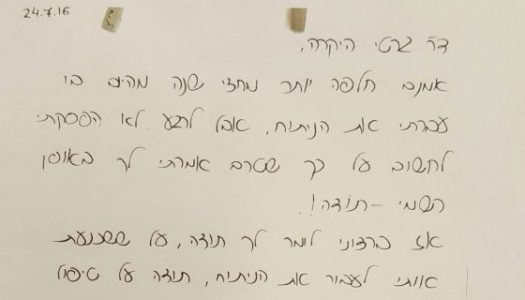 24.7.16
דר גרטי היקרה,
אמנם חלפה יותר מחצי שנה מהיום בו
עברתי את הניתוח, אבל לרגע לא הפסקתי
לחשוב על כך שטרם אמרתי לך באופן
רשמי - תודה!
אז ברצוני לומר לך תודה, על ששכנעת
אותי לעבור את הניתוח, תודה על טיפול